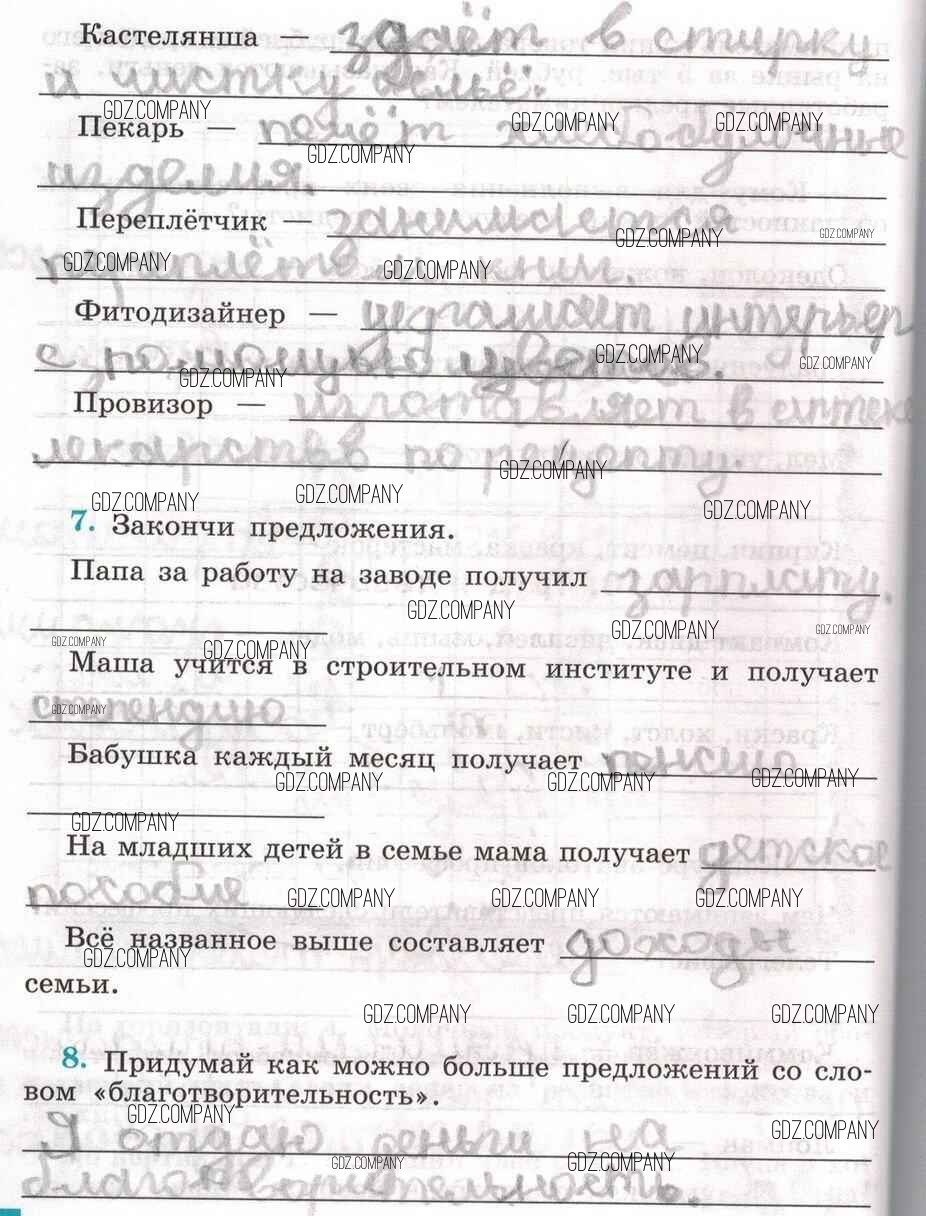 Кастелянша — здаёт в стирку
и чистку бельё.
GDZ.COMPANY
Пекарь — печёт хлебобулочные
GDZ.COMPANY GDZ.COMPANY
GDZ.COMPANY
изделия.
Переплётчик — занимается
GDZ.COMPANY GDZ.COMPANY
переплётом книг.
GDZ.COMPANY GDZ.COMPANY
Фитодизайнер — украшает интерьер
с помощью цветов.
GDZ.COMPANY GDZ.COMPANY
GDZ.COMPANY
Провизор — изготавляет в аптеке
лекарства по рецепту.
GDZ.COMPANY
GDZ.COMPANY GDZ.COMPANY GDZ.COMPANY
7. Закончи предложения.
Папа за работу на заводе получил зарплату.
GDZ.COMPANY
GDZ.COMPANY GDZ.COMPANY
GDZ.COMPANY GDZ.COMPANY
Маша учится в строительном институте и получает
стипендию
GDZ.COMPANY
Бабушка каждый месяц получает пенсию
GDZ.COMPANY GDZ.COMPANY GDZ.COMPANY
GDZ.COMPANY
На младших детей в семье мама получает детское
пособие
GDZ.COMPANY GDZ.COMPANY GDZ.COMPANY
Всё названное выше составляет доходы
GDZ.COMPANY
семьи.
GDZ.COMPANY GDZ.COMPANY GDZ.COMPANY
8. Придумай как можно больше предложений со сло-
вом «благотворительность».
GDZ.COMPANY
Я отдаю деньги на
GDZ.COMPANY
GDZ.COMPANY GDZ.COMPANY
благотворительность.